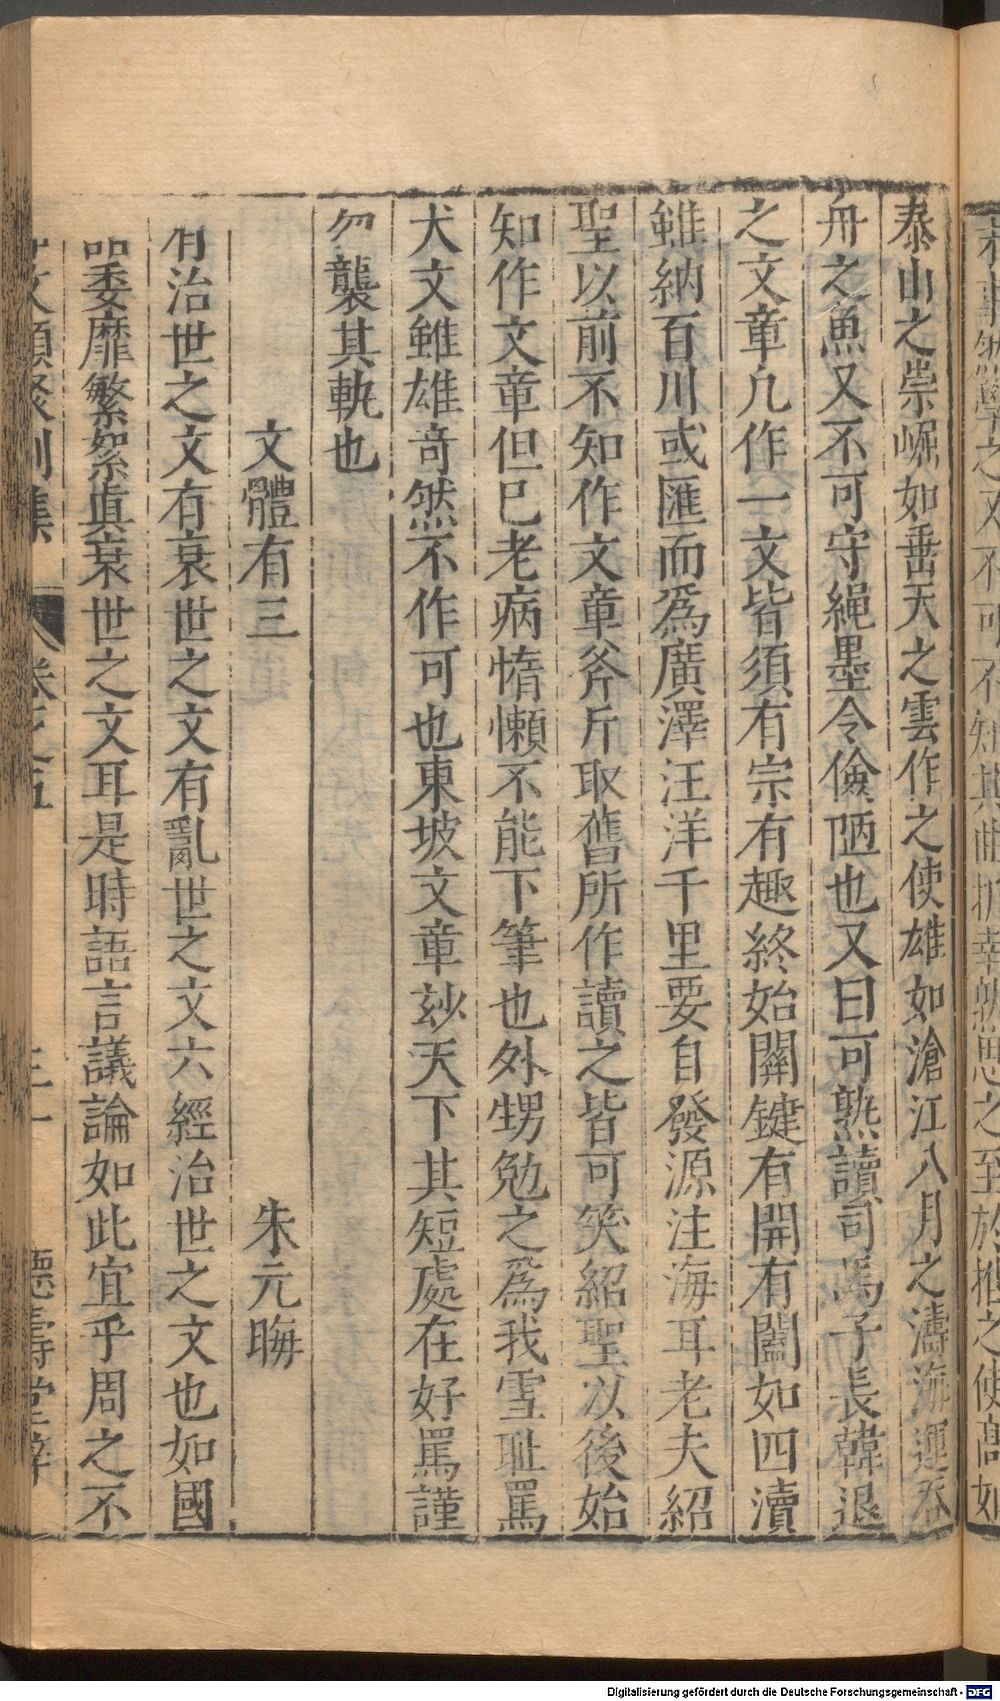 泰山之崇崛如垂天之雲作之使雄如滄江八月之濤海運吞
舟之魚又不可守繩墨令儉陋也又曰可熟讀司馬子長韓退
之文章凢作一文皆須有宗有趣終始關鍵有開有闔如四瀆
雖納百川或匯而爲廣澤汪洋千里要自發源注海耳老夫紹
聖以前不知作文章斧斤取舊所作讀之皆可笑紹聖以後始
知作文章但已老病惰懶不能下筆也外甥勉之爲我雪耻罵
犬文雖雄奇然不作可也東坡文章玅天下其短處在好罵謹
勿襲其軌也
文體有三 朱元晦
有治世之文有衰世之文有亂世之文六經治世之文也如國
語委靡繁絮真衰世之文耳是時語言議論如此宜乎周之不
事文類聚別集 卷之五 三十一 德壽堂梓
Digitalisierung gefördert durch die Deutsche Forschungsgemeinschaft - DFG